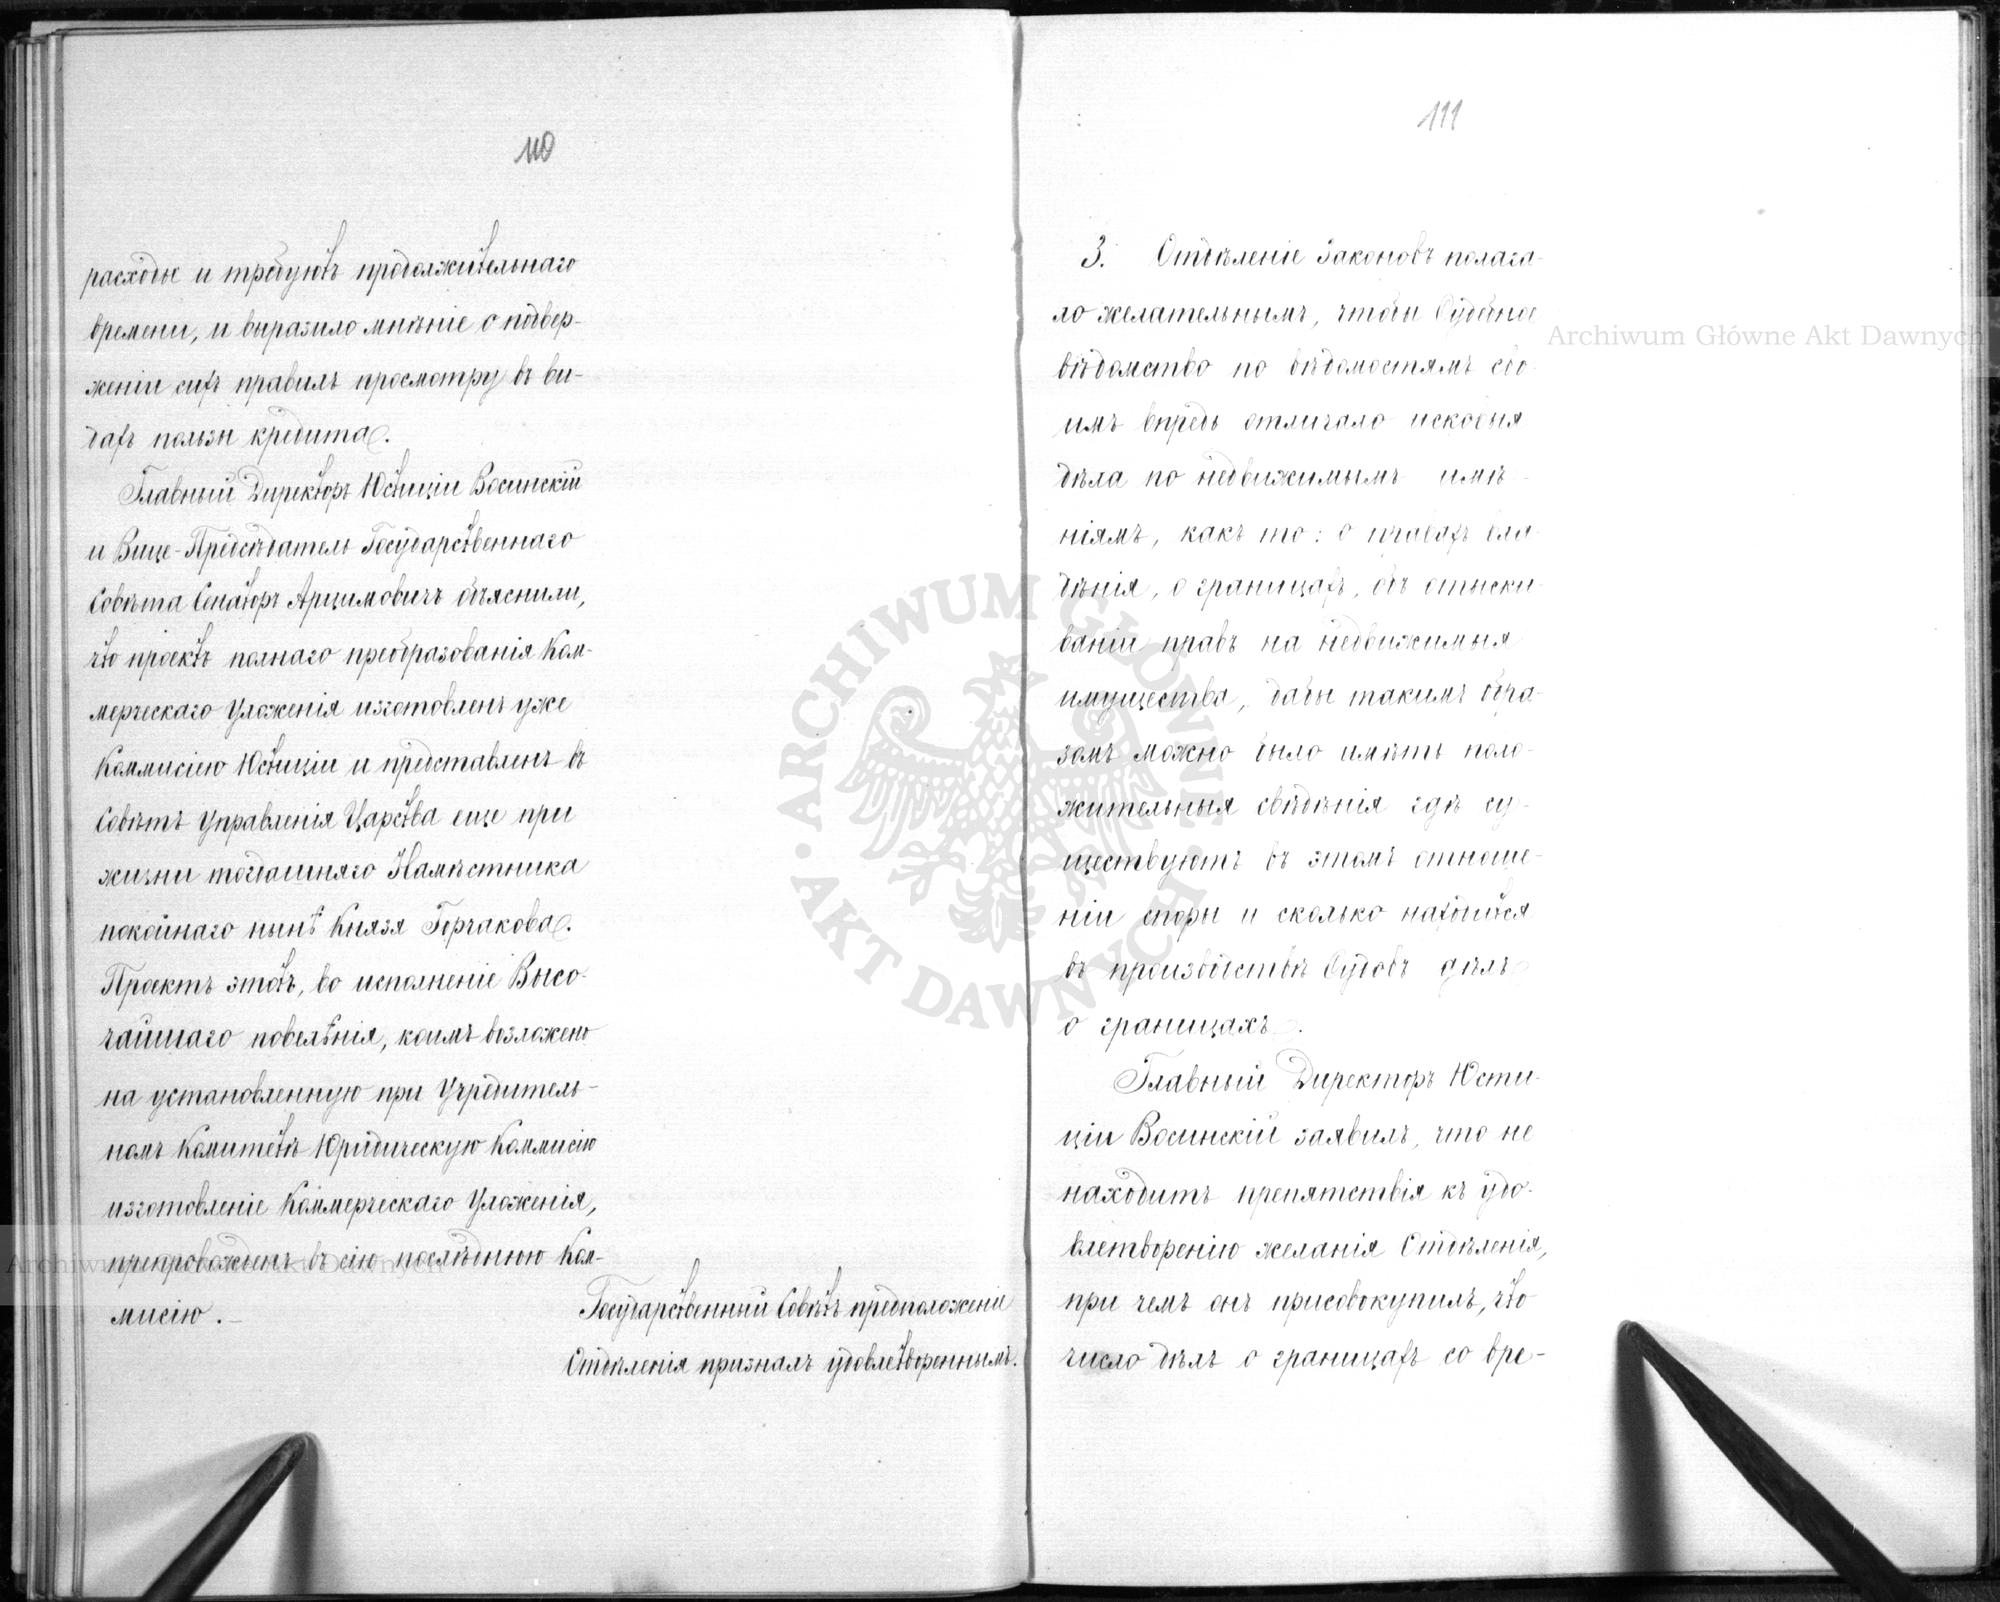 110
расходы и требуютъ продолжительнаго
времени, и выразило мнѣніе о подвер-
женіи сихъ правилъ просмотру въ ви-
дахъ пользы кредита.
Главный Директоръ Юстиціи Восинскій
и Вице-Предсѣдатель Государственнаго
Совѣта Сенаторъ Арцимовичъ объяснили,
что проектъ полнаго преобразованія Ком-
мерческаго Уложенія изготовленъ уже
Коммисіею Юстиціи и представленъ въ
Совѣтъ Управленія Царства еще при
жизни тогдашняго Намѣстника
покойнаго нынѣ Князя Горчакова.
Проектъ этотъ, во исполненіе Высо-
чайшаго повелѣнія, коимъ возложено
на установленную при Учредитель-
номъ Комитетѣ Юридическую Коммисію
изготовленіе Коммерческаго Уложенія,
препровожденъ въ сію послѣднюю Ком-
мисію.
Государственный Совѣтъ предположеніе
Отдѣленія призналъ удовлетвореннымъ.
111
3. Отдѣленіе Законовъ полага-
ло желательнымъ, чтобы Судебное
вѣдомство по вѣдомостямъ сво-
имъ впредь отличало исковыя
дѣла по недвижимымъ имѣ-
ніямъ, какъ то: о правахъ вла-
дѣнія, о границахъ, объ отыски-
ваніи правъ на недвижимыя
имущества, дабы такимъ обра-
зомъ можно было имѣть поло-
жительныя свѣдѣнія гдѣ су-
ществуютъ въ этомъ отноше-
ніи споры и сколько находится
въ производствѣ Судовъ дѣлъ
о границахъ.
Главный Директоръ Юсти-
ціи Восинскій заявилъ, что не
находитъ препятствія къ удо-
влетворенію желанія Отдѣленія,
при чемъ онъ присовокупилъ, что
число дѣлъ о границахъ со вре-
Archiwum Główne Akt Dawnych
Archiwum Główne Akt Dawnych
ARCHIWUM GŁÓWNE · AKT DAWNYCH ·